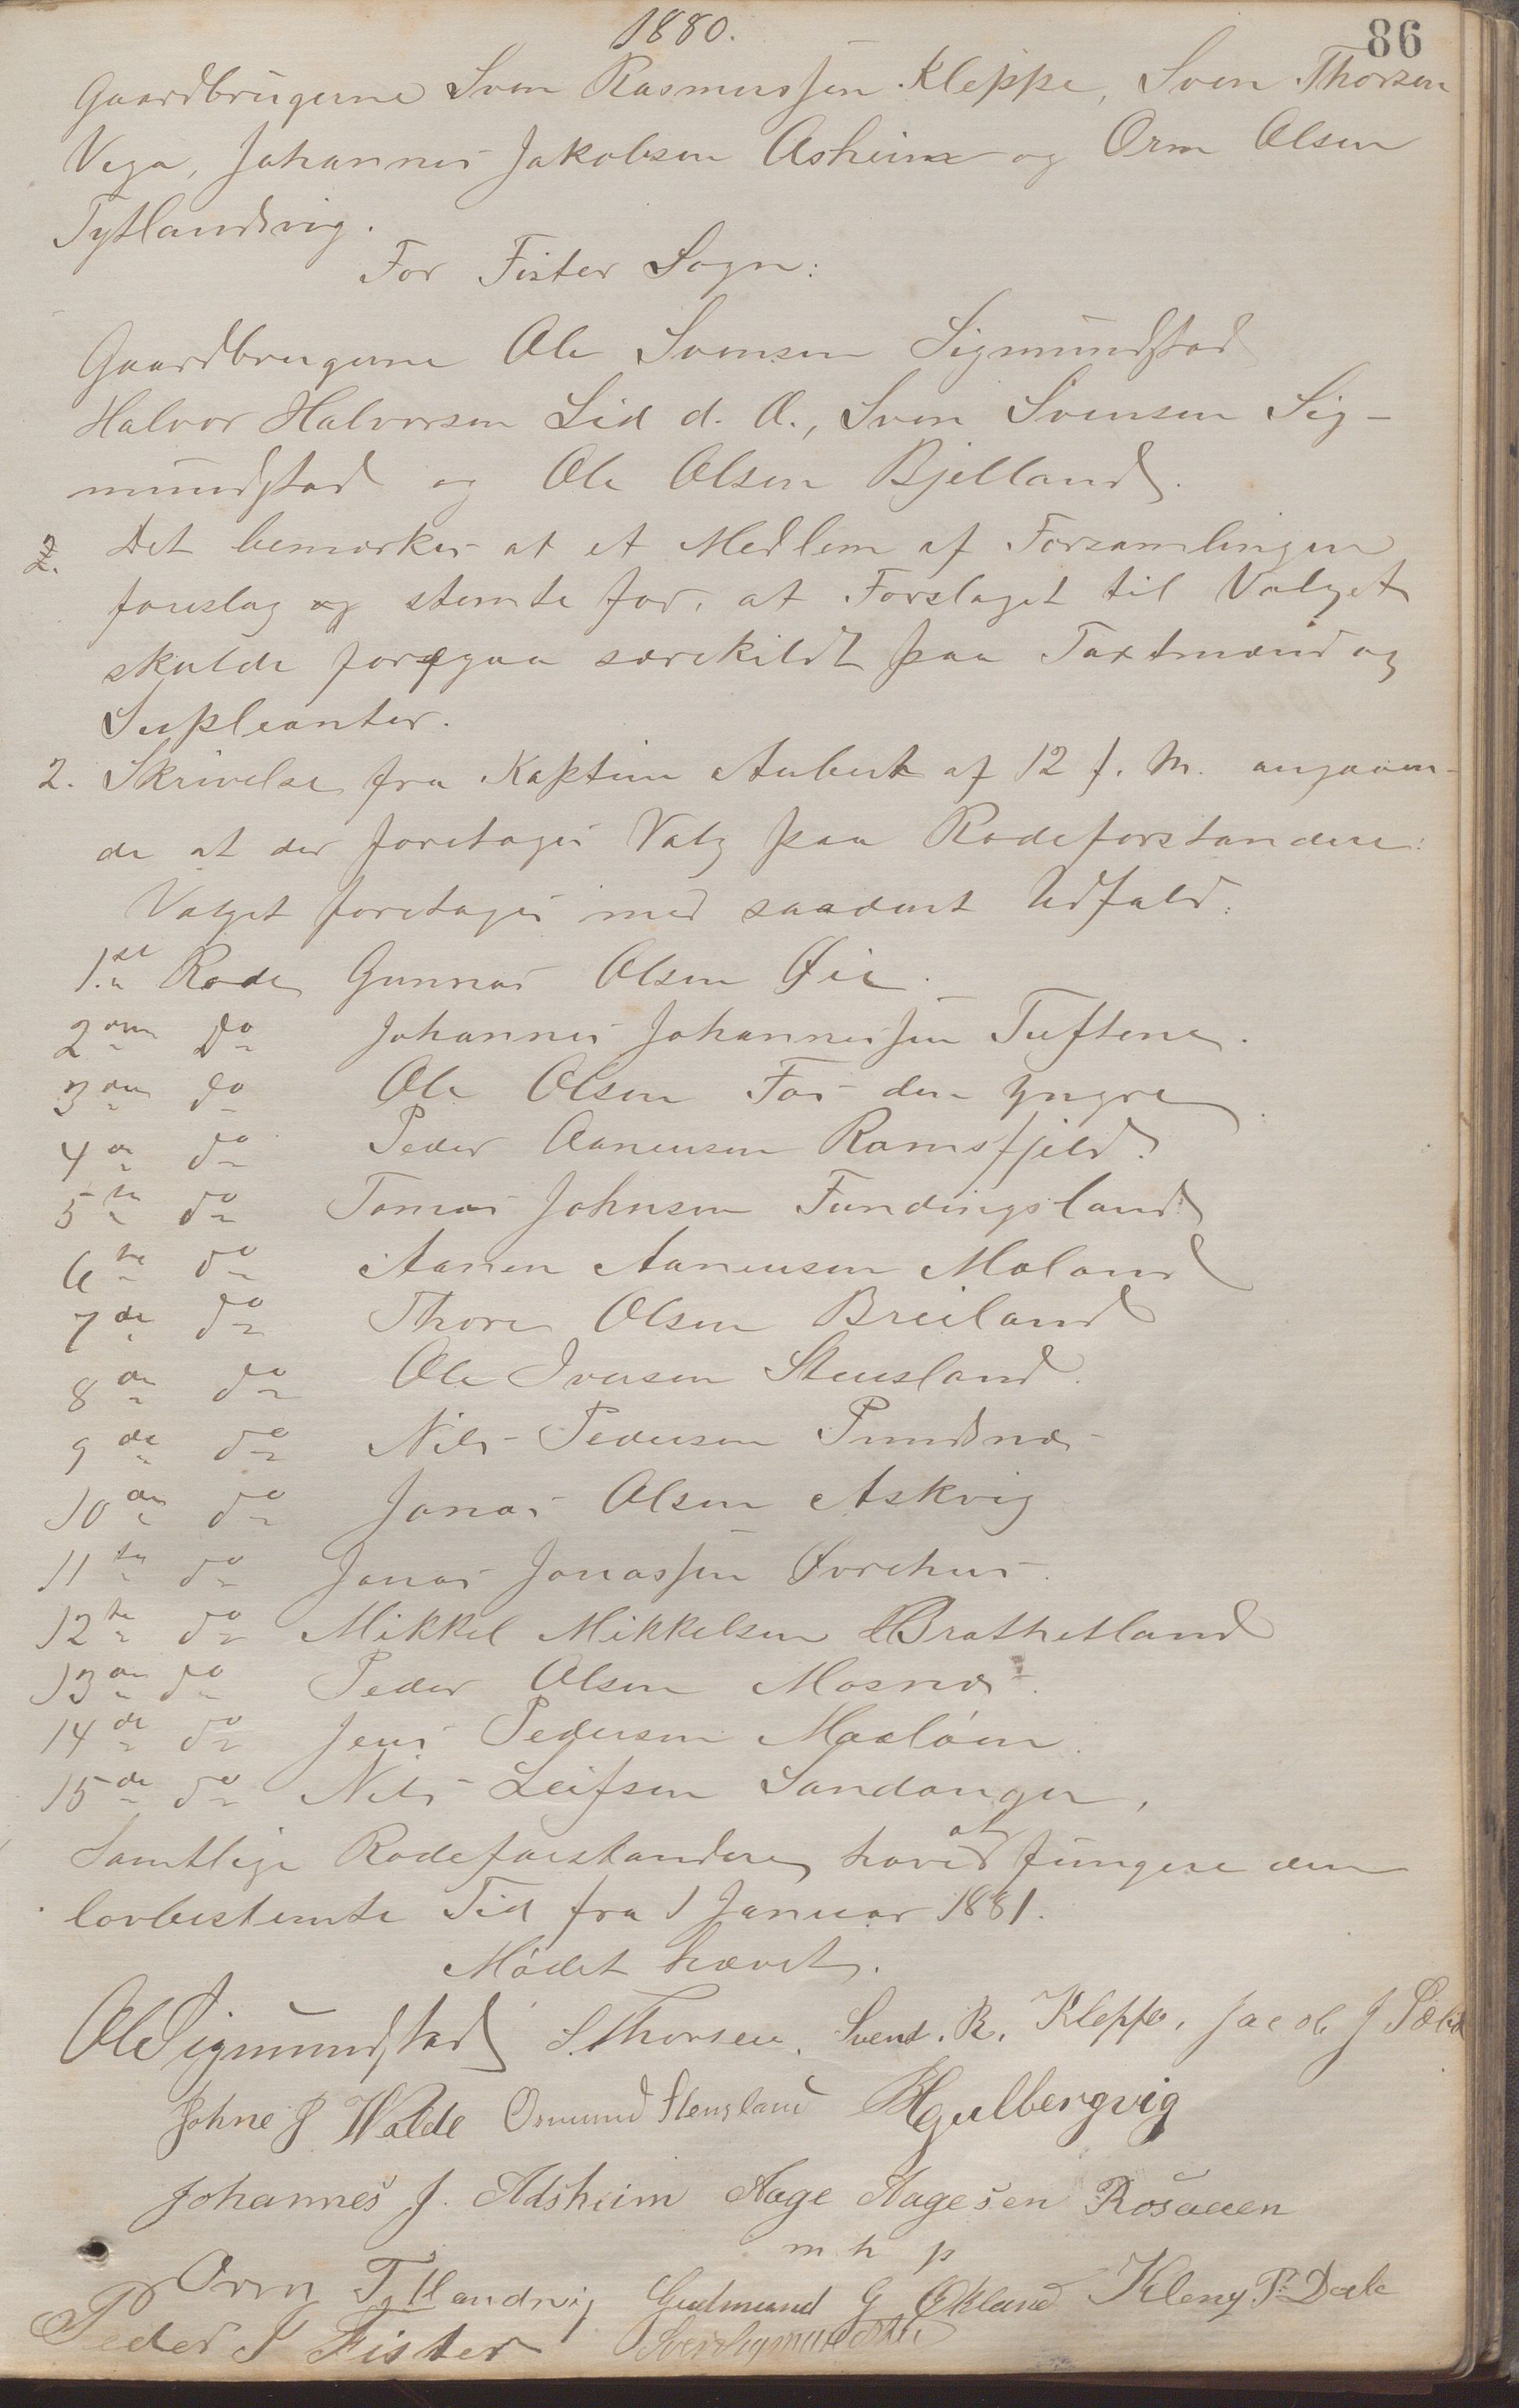 1880.
86
Gaardbrugerne Sven Rasmussen Kleppe, Sven Thorsen
Vega, Johannes Jakobsen Asheim og Orm Olsen
Tytlandsvig.
For Fister Sogn:
Gaardbrugerne Ole Svensen Sigmundstad
Halvor Halvorsen Lid d. Æ., Sven Svensen Sig-
mundstad og Ole Olsen Bjelland.
2. Det bemærkes at et Medlem af Forsamlingen
foreslog og stemte for, at Forslaget til Valget
skulde foregaa særskildt paa Taxtmænd og
Supleanter.
2. Skrivelse fra Kaptein Aubert af 12 f. M. angaaen-
de at der foretages Valg paa Rodeforstandere:
Valget foretages med saadant Udfald:
1.ste Rode Gunnar Olsen Øie.
2den do Johannes Johannessen Tuftene.
3die do Ole Olsen Fos den yngre
4de do Peder Aanensen Ramsfjeld.
5te do Tomas Johnsen Fundingsland
6te do Aanen Aanensen Moland
7de do Thore Olsen Breiland
8de do Ole Iversen Stensland.
9de do Nils Pedersen Pundsnes
10de do Jonas Olsen Askvig
11te do Jonas Jonassen Øvrehus.
12te do Mikkel Mikkelsen Brathetland
13de do Peder Olsen Mosnæs.
14de do Jens Pedersen Maaløen.
15de do Nils Leifsen Sandanger.
Samtlige Rodeforstandere haver at fungere den
lovbestemte Tid fra 1 Januar 1881.
Mødet hævet.
Ole Sigmundstad S. Thorsen. Svend. R. Kleppe. Jacob J
Johne J Walde Osmund Stensland Hgulbergvig
Johannes J. Adsheim Aage Aagesen Rosaaen
m h p
Orm Tytlandsvig Gudmund G Økland Kleng P. Dale
Peder J Fister Sven Sigmundstad